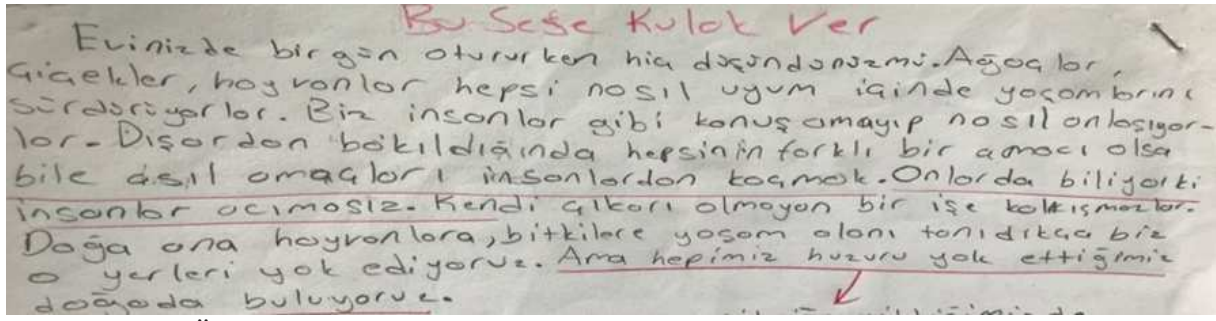 Bu Sese Kulak Ver
Evinizde bir gün otururken hiç düşündünüzmü. Ağaçlar,
Çiçekler, hayvanlar hepsi nasıl uyum içinde yaşamlarını
sürdürüyorlar. Biz insanlar gibi konuşamayıp nasıl anlaşıyor-
lar. Dışardan bakıldığında hepsinin farklı bir amacı olsa
bile asıl amaçları insanlardan kaçmak. Onlarda biliyorki
insanlar acımasız. Kendi çıkarı olmayan bir işe kalkışmazlar.
Doğa ana hayvanlara, bitkilere yaşam alanı tanıdıkça biz
o yerleri yok ediyoruz. Ama hepimiz huzuru yok ettiğimiz
doğada buluyoruz.